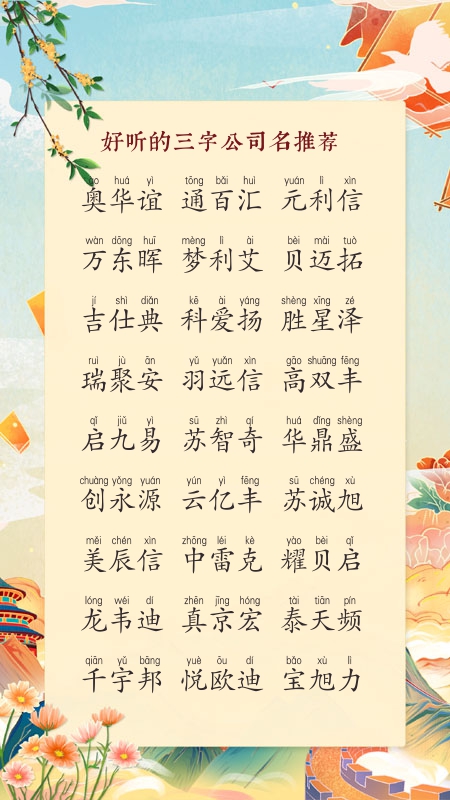 好听的三字公司名推荐
ào huá yì tōng bǎi huì yuán lì xìn
奥华谊 通百汇 元利信
wàn dōng huī mèng lì ài bèi mài tuò
万东晖 梦利艾 贝迈拓
jí shì diǎn kē ài yáng shèng xīng zé
吉仕典 科爱扬 胜星泽
ruì jù ān yǔ yuǎn xìn gāo shuāng fēng
瑞聚安 羽远信 高双丰
qǐ jiǔ yì sū zhì qí huá dǐng shèng
启九易 苏智奇 华鼎盛
chuàng yǒng yuán yún yì fēng sū chéng xù
创永源 云亿丰 苏诚旭
měi chén xìn zhōng léi kè yào bèi qǐ
美辰信 中雷克 耀贝启
lóng wéi dí zhēn jīng hóng tài tiān pín
龙韦迪 真京宏 泰天频
qiān yǔ bāng yuè ōu dí bǎo xù lì
千宇邦 悦欧迪 宝旭力